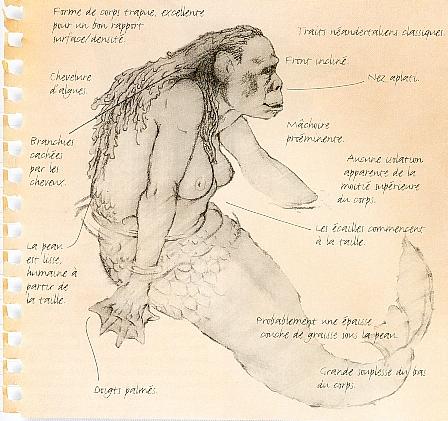 Forme de corps trapue, excellente
pour un bon rapport
surface/densité.
Traits néandertaliens classiques.
Front incliné.
Nez aplati.
Chevelure
d'algues.
Mâchoire
proéminente.
Branchies
cachées
par les
cheveux.
Aucune isolation
apparente de la
moitié supérieure
du corps.
Les écailles commencent
à la taille.
La peau
est lisse,
humaine à
partir de
la taille.
Probablement une épaisse
couche de graisse sous la peau.
Grande souplesse du bas
du corps.
Doigts palmés.